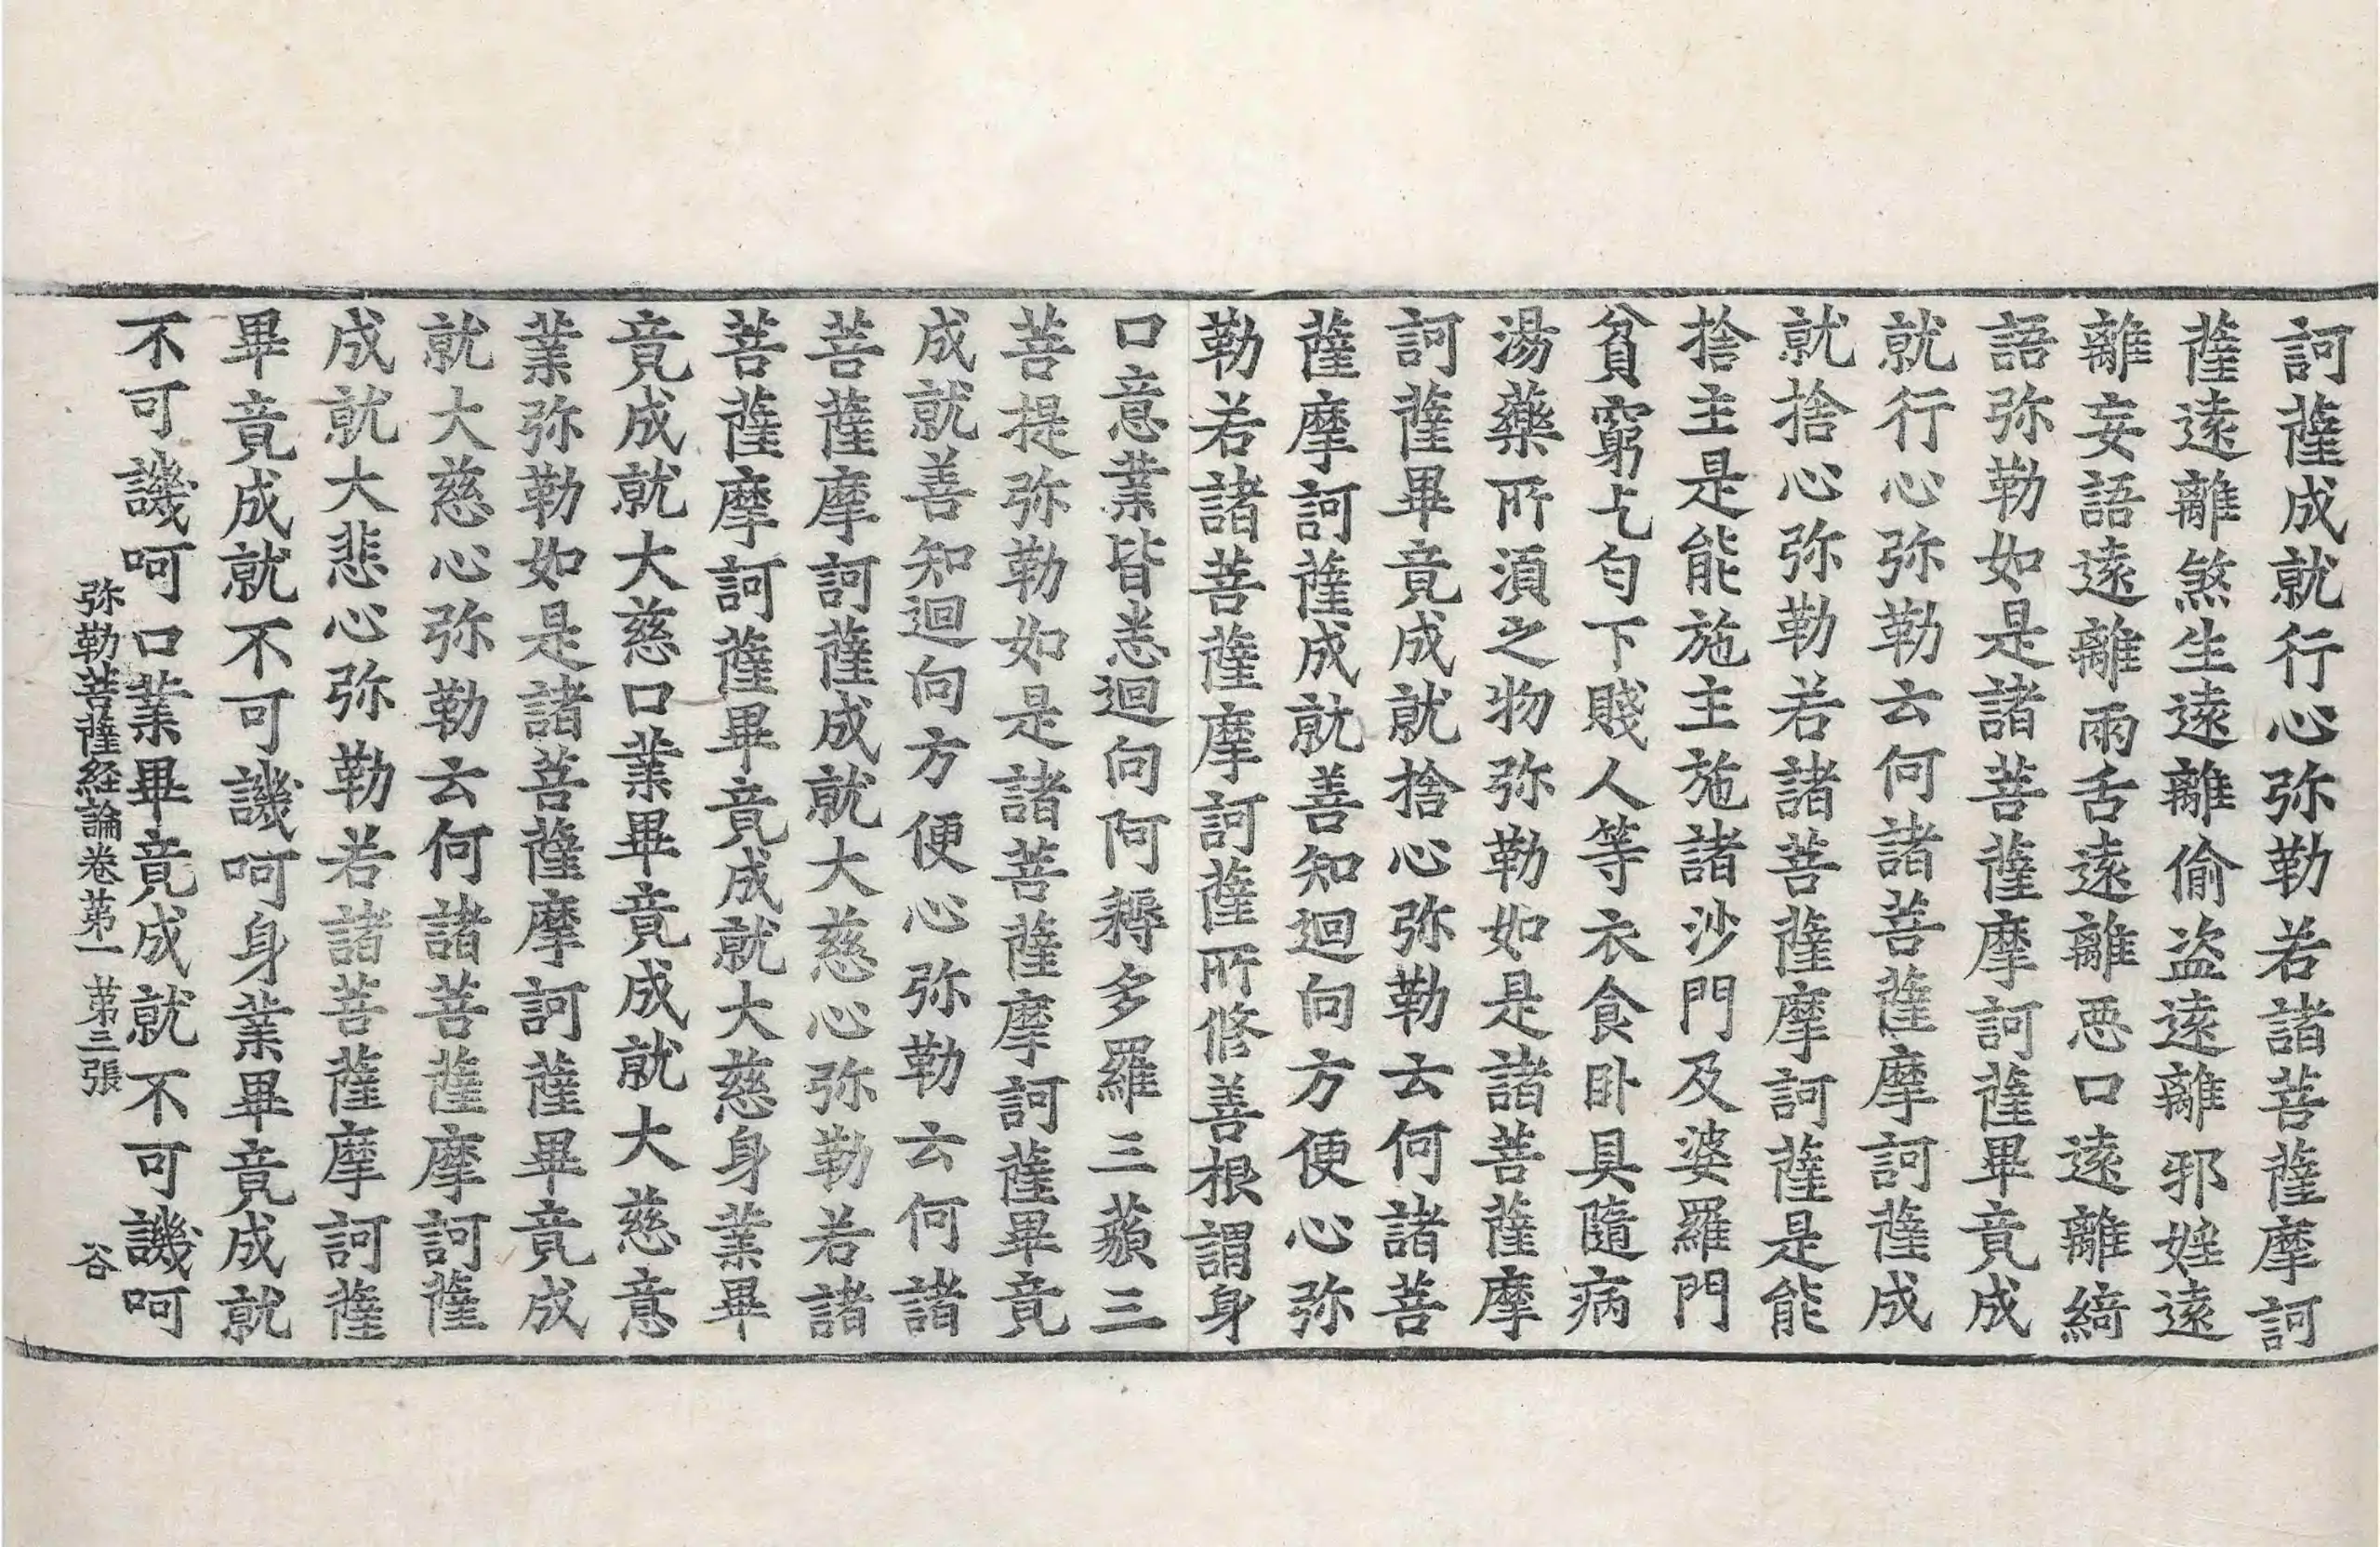 訶薩成就行心弥勒若諸菩薩摩訶
薩遠離煞生遠離偷盗遠離邪婬遠
離妄語遠離兩舌遠離惡口遠離綺
語弥勒如是諸菩薩摩訶薩畢竟成
就行心弥勒云何諸菩薩摩訶薩成
就捨心弥勒若諸菩薩摩訶薩是能
捨主是能施主施諸沙門及婆羅門
貧窮乞匄下賤人等衣食卧具隨病
湯藥所須之物弥勒如是諸菩薩摩
訶薩畢竟成就捨心弥勒云何諸菩
薩摩訶薩成就善知迴向方便心弥
勒若諸菩薩摩訶薩所修善根謂身
口意業皆悉迴向阿耨多羅三藐三
菩提弥勒如是諸菩薩摩訶薩畢竟
成就善知迴向方便心弥勒云何諸
菩薩摩訶薩成就大慈心弥勒若諸
菩薩摩訶薩畢竟成就大慈身業畢
竟成就大慈口業畢竟成就大慈意
業弥勒如是諸菩薩摩訶薩畢竟成
就大慈心弥勒云何諸菩薩摩訶薩
成就大悲心弥勒若諸菩薩摩訶薩
畢竟成就不可譏呵身業畢竟成就
不可譏呵口業畢竟成就不可譏呵
弥勒菩薩経論卷苐一 苐三張 谷